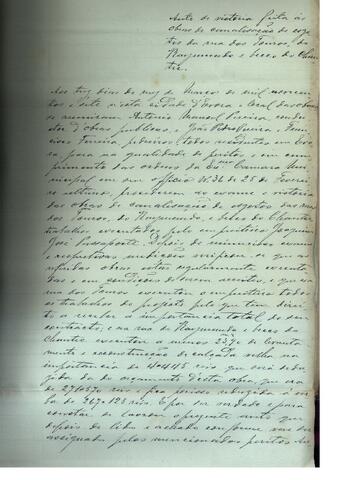 Auto de vistoria feita ás
obras de canalisação de esgo-
tos da rua dos Touros, do
Raymundo e beco do Chan-
tre.
Aos tres dias do mez de Março de mil novecen-
tos e sete n'esta cidade d'Evora e local das obras
se reuniram Antonio Manoel Pereira, condu-
ctor d'obras publicas, e João Pedro e Fran-
cisco Ferreira pedreiros, todos residentes em Evo-
ra para na qualidade de peritos, e em cum-
primento das ordens da Exma Camara Mu-
nicipal em seu officio Nº 36 de 25 de Feverei-
ro ultimo, procederem ao exame e vistoria
das obras de canalisação de esgotos das ruas
dos Touros, do Raymundo, e beco do Chantre
trabalhos executados pelo empreiteiro Joaquim
José Passaporte. Depois de minucioso exame
e respectivas medições verificou-se que as
referidas obras estão regularmente executa-
das e em condições de serem acceites, e que na
rua dos Touros executou o empreiteiro todos
os trabalhos do projecto pelo que tem direi-
to a receber a importancia total do seu
contracto; e na rua do Raymundo e beco do
Chantre executou a menos de levanta-
mento e reconstrucção de calçada velha na
importancia de 4$445 reis que será dedu-
zida da do orçamento d'esta obra, que era
de reis, e fica por isso reduzida á ver-
ba de 267$128 reis. E por ser verdade e para
constar se lavrou o presente auto que
depois de lido e achado conforme vae ser
assignado pelos mencionados peritos An-